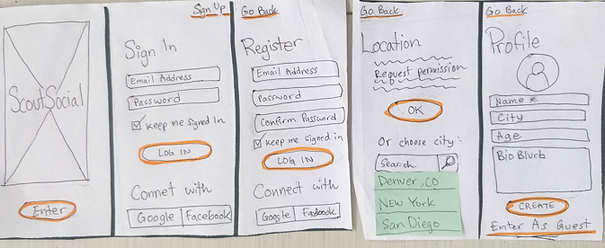 ScoutSocial
Enter
Sign Up
Sign In
Email Address
Password
Keep me signed In
LOG IN
Connect with
Google Facebook
Go Back
Register
Email Address
Password
Confirm Password
Keep me signed in
LOG IN
Connect with
Google Facebook
Go Back
Location
Request permission
OK
Or choose city:
Search
Denver, CO
New York
San Diego
Go Back
Profile
Name *
City
Age
Bio Blurb
CREATE
Enter As Guest